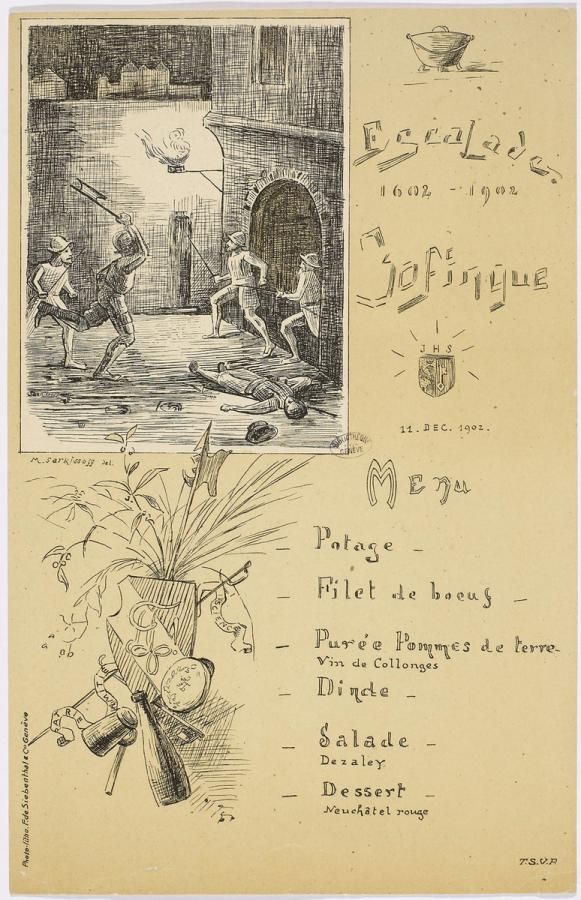 Escalade
1602 - 1902
Zofingue
JHS
11. DEC. 1902.
BIBLIOTHÈQUE
GENÈVE
M. Sarkissoff del.
Menu
- Potage -
- Filet de boeuf -
- Purée Pommes de terre -
Vin de Collonges
- Dinde -
- Salade -
Dezaley
- Dessert -
Neuchâtel rouge
PATRIE
Photo-litho. F. de Siebenthal & Cie Genève
T.S.V.P.